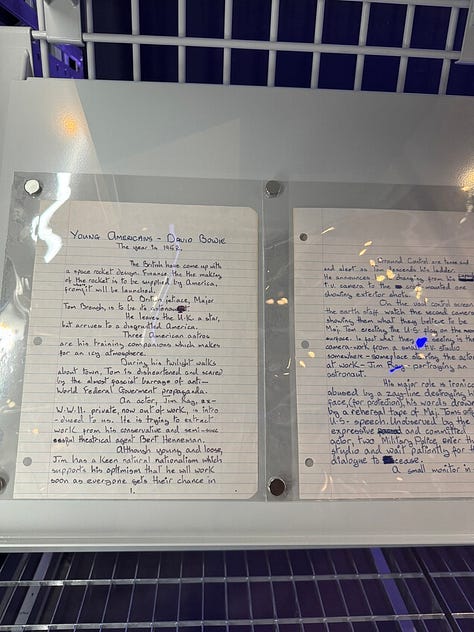 YOUNG AMERICANS - DAVID BOWIE
The year is 1952.
The British have come up with
a space rocket design. Finance the the making
of the rocket is to be supplied by America,
from it will be launched.
A British palace, Major
Tom Brough, is to be its astronaut
He leaves the U.K. a star,
but arrives to a disgruntled America.
Three American astros
are his training companions which makes
for an icy atmosphere.
During his twilight walks
about town, Tom is disheartened and scared
by the almost facist barrage of anti-
World Federal Government propaganda.
An actor, Jim Rag, ex-
W.W.II. private, now out of work, is intro
-duced to us. He is trying to extract
work from his conservative and semi-succ
essful theatrical agent Bert Henneman.
Although young and loose,
Jim has a keen natural nationalism which
supports his optimism that he will work
soon as everyone gets their chance in
1.
Ground Control are tense and
and alert as Tom descends his ladder.
He announces to
t.v. camera to the mounted one
showing exterior photo.
On the vast control screen
the earth staff watch the second camera
showing them what they believe to be
Maj. Tom erecting the U.S. flag on the
surface. In fact what they seeing is the
camera-work from a t.v. studio
somewhere - someplace showing the
at work - Jim portraying an
astronaut.
His major role is ironic
abused by a ray-line destroying his
face (for protection) his words drowned
by a rehearsal tape of Maj. Tom's
U.S. speech. Unobserved by the
expressive and committed
actor, two Military Police enter the
studio and wait patiently for
dialogue to cease.
A small monitor in